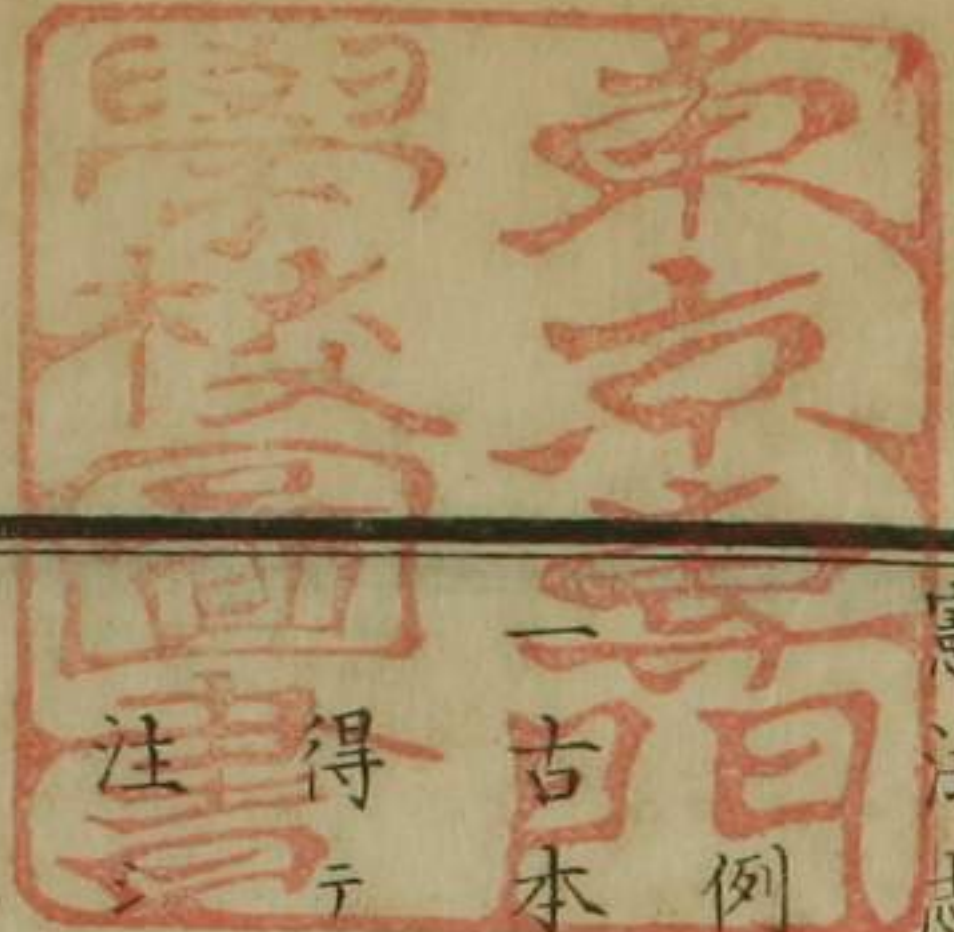 東京專門
學校圖書
例
一古本
得テ
注シ